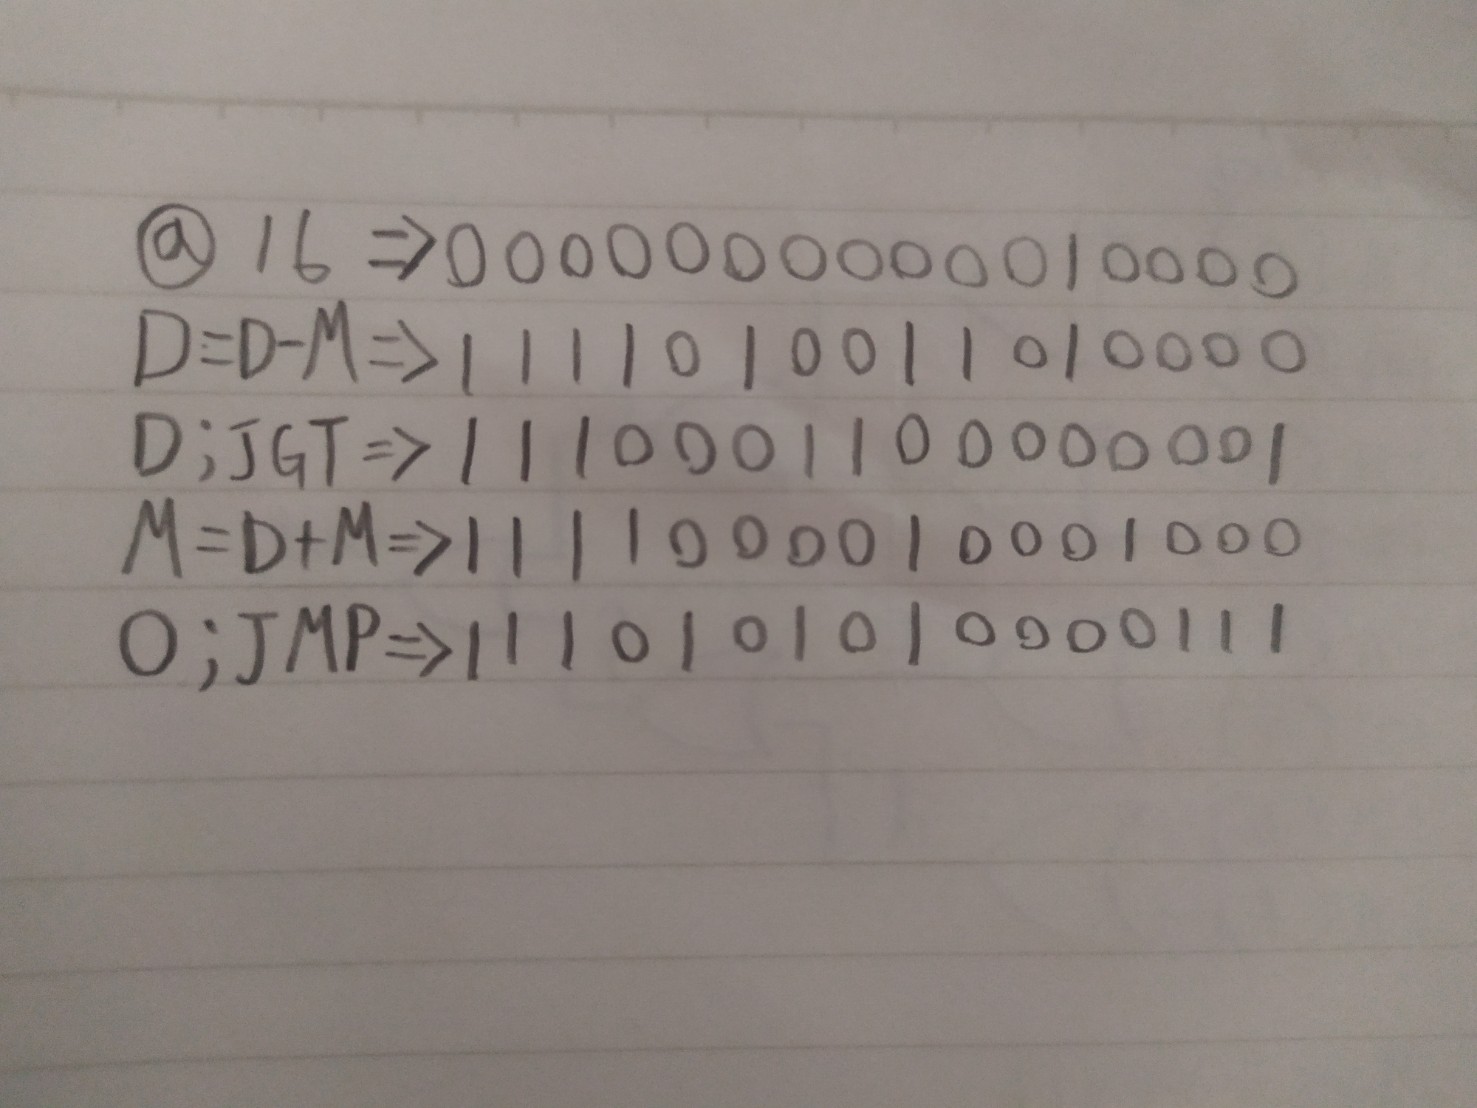 @16⇒0000000000010000
D=D-M⇒1111010011010000
D;JGT⇒1110001100000001
M=D+M⇒1111000010001000
0;JMP⇒1110101010000111